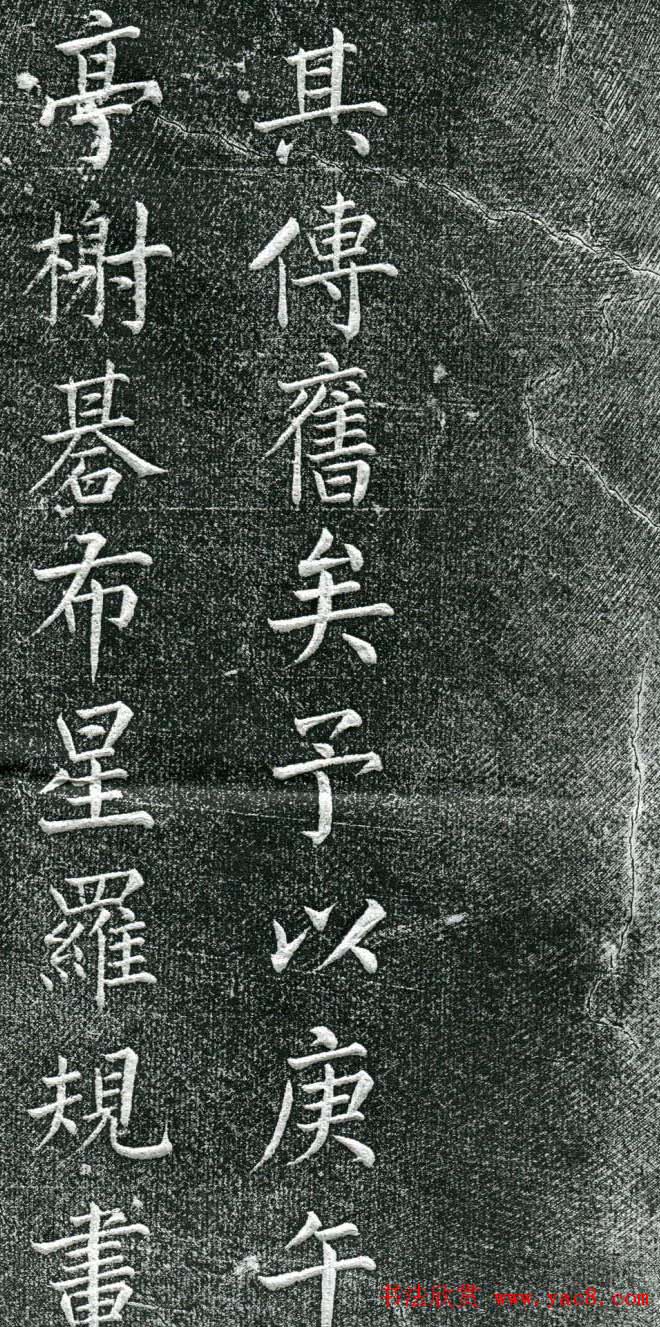 其傳舊矣予以庚午
亭榭碁布星羅規畫
书法欣赏 www.yac8.com